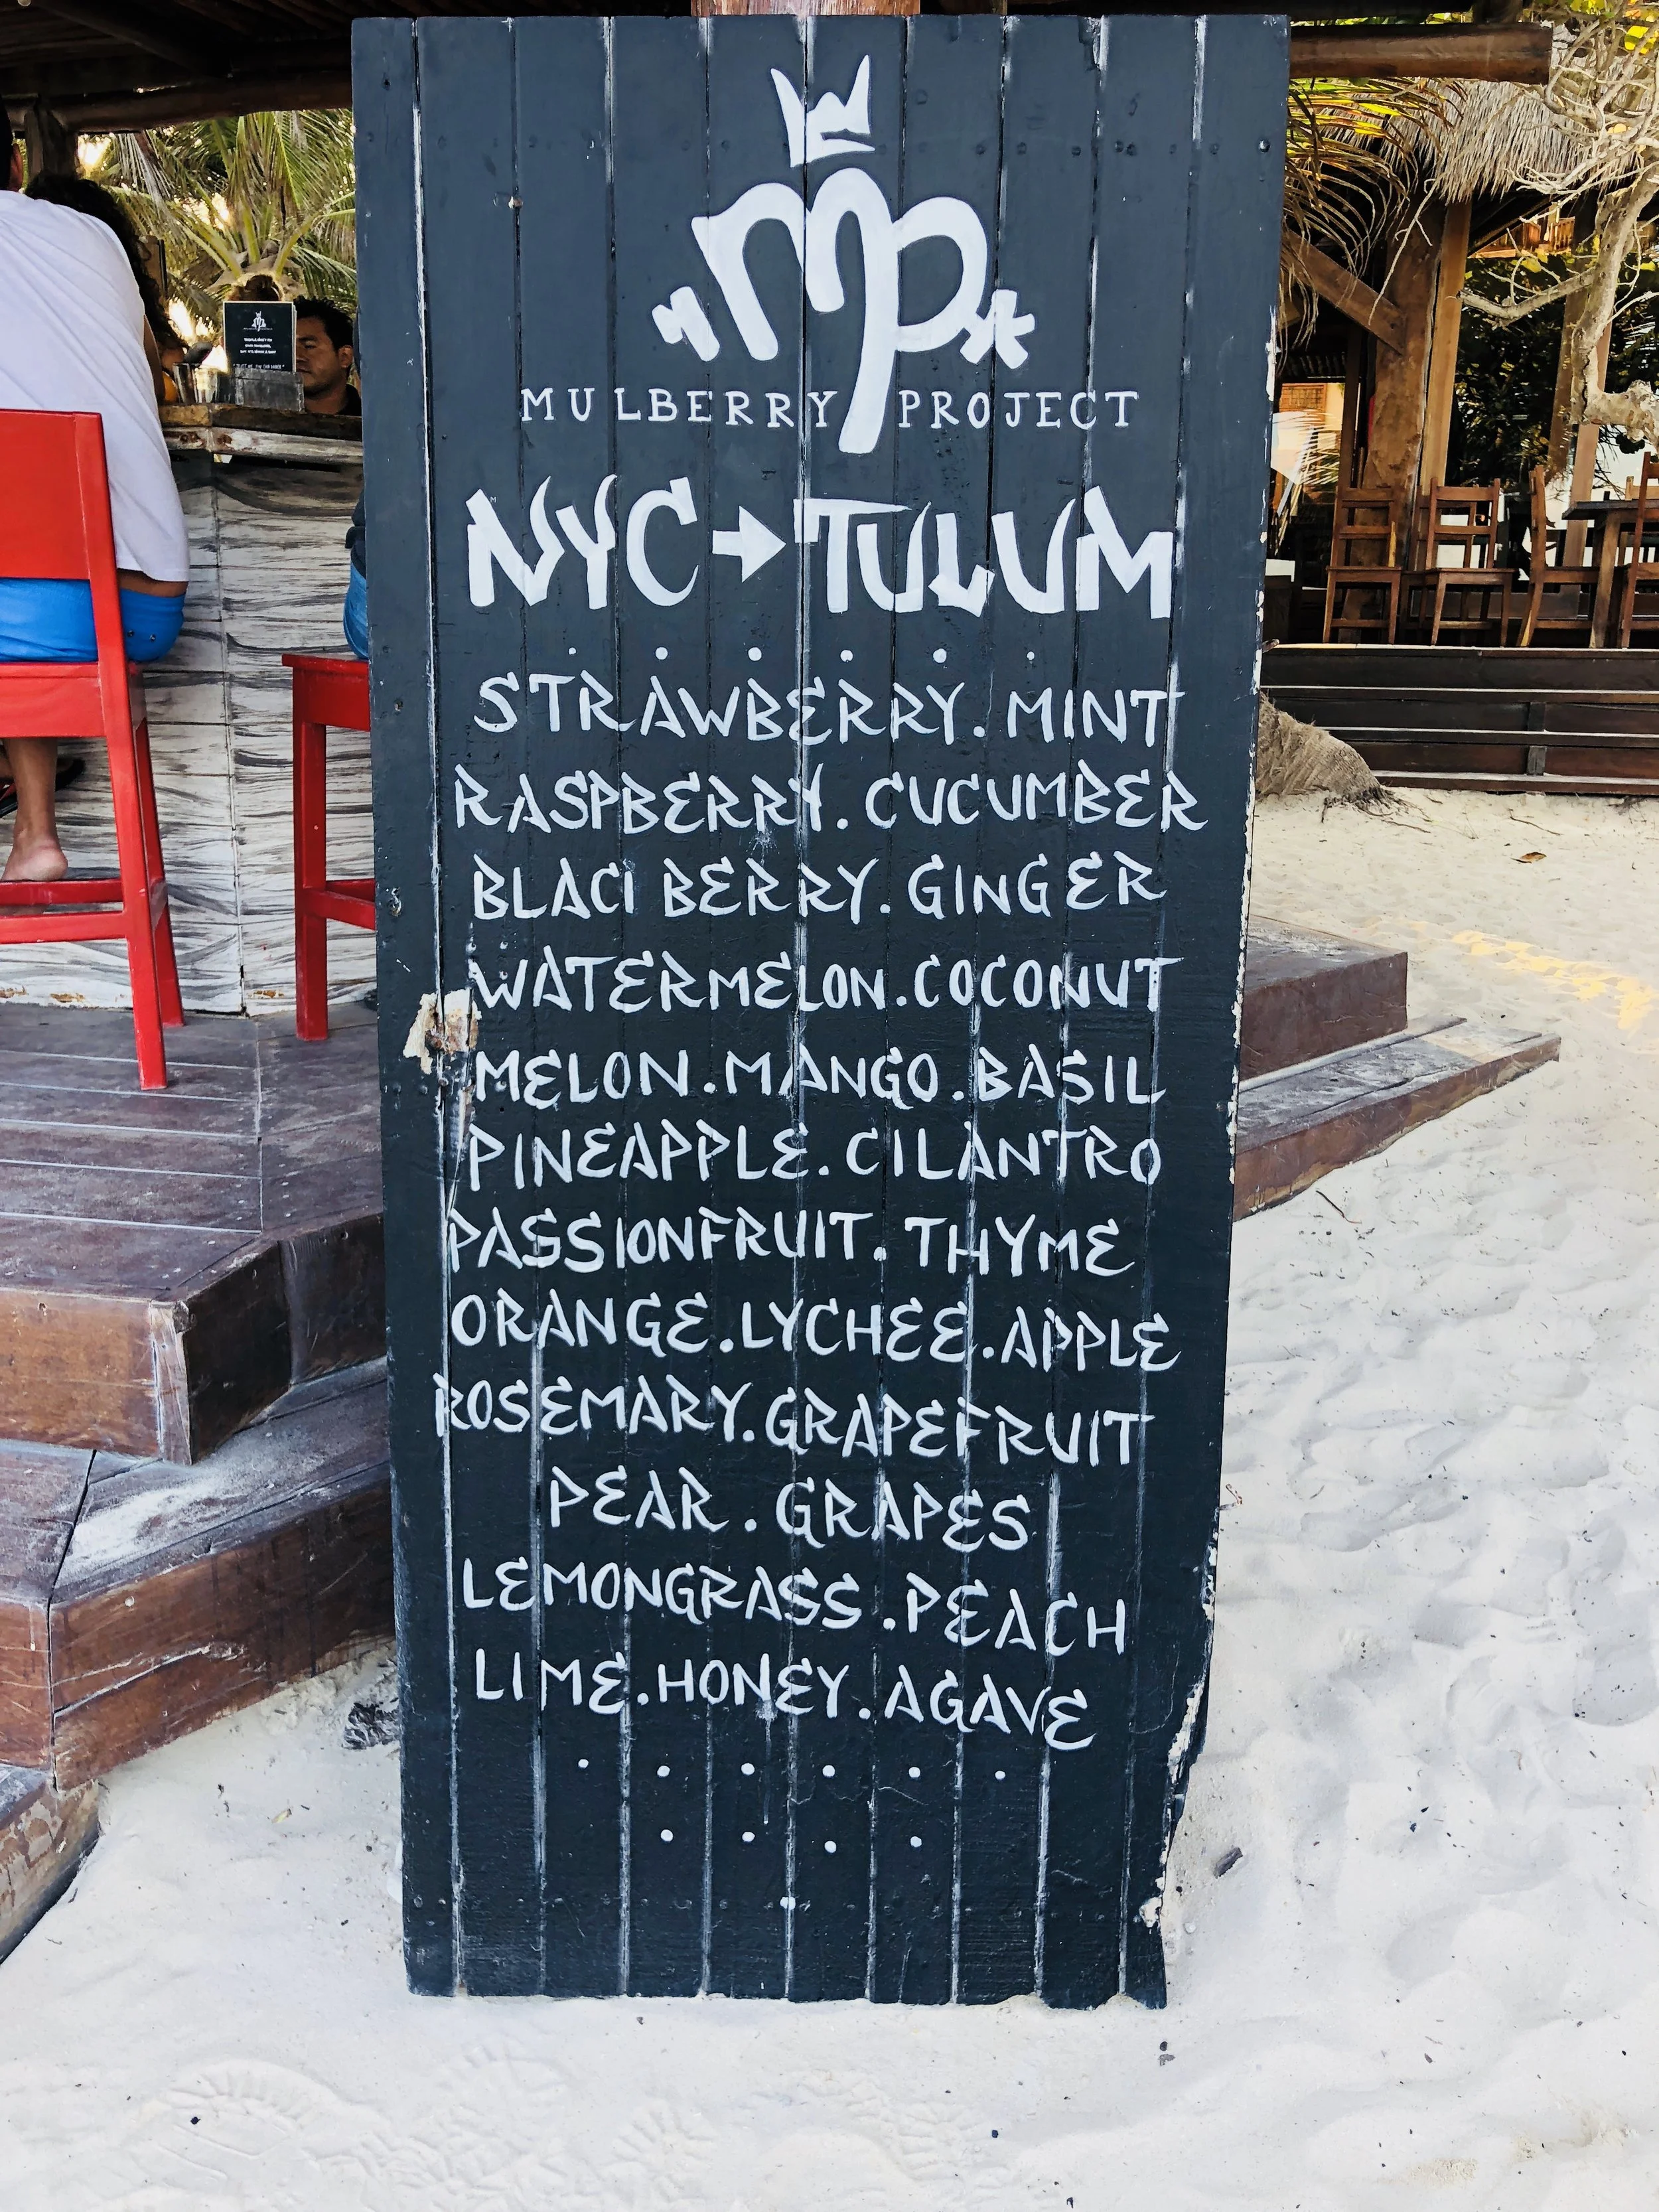 mp
MULBERRY PROJECT
NYC→TULUM
STRAWBERRY.MINT
RASPBERRY.CUCUMBER
BLACI BERRY.GINGER
WATERMELON.COCONUT
MELON.MANGO.BASIL
PINEAPPLE.CILANTRO
PASSIONFRUIT.THYME
ORANGE.LYCHEE.APPLE
ROSEMARY.GRAPEFRUIT
PEAR.GRAPES
LEMONGRASS.PEACH
LIME.HONEY.AGAVE